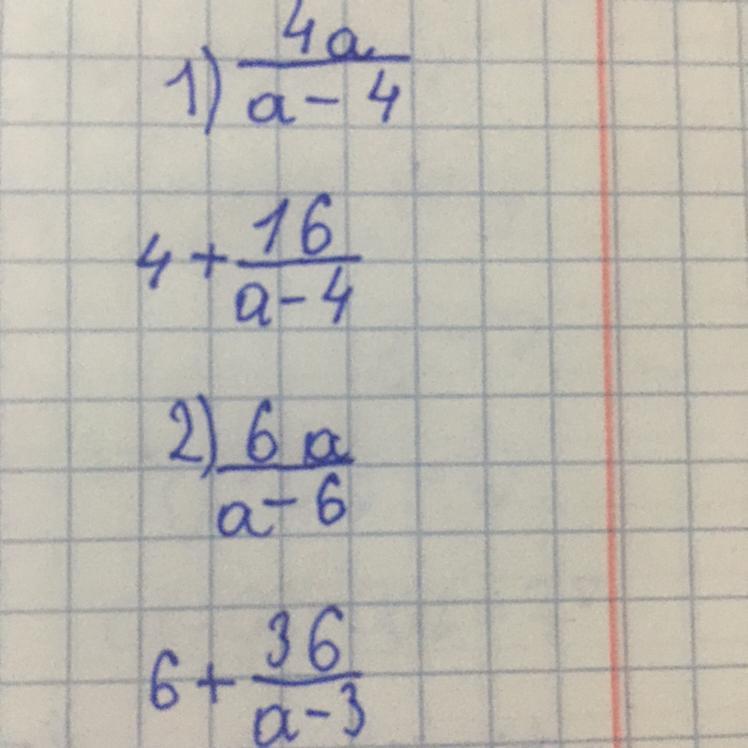 1) 4a/(a-4)
4 + 16/(a-4)
2) 6a/(a-6)
6 + 36/(a-3)